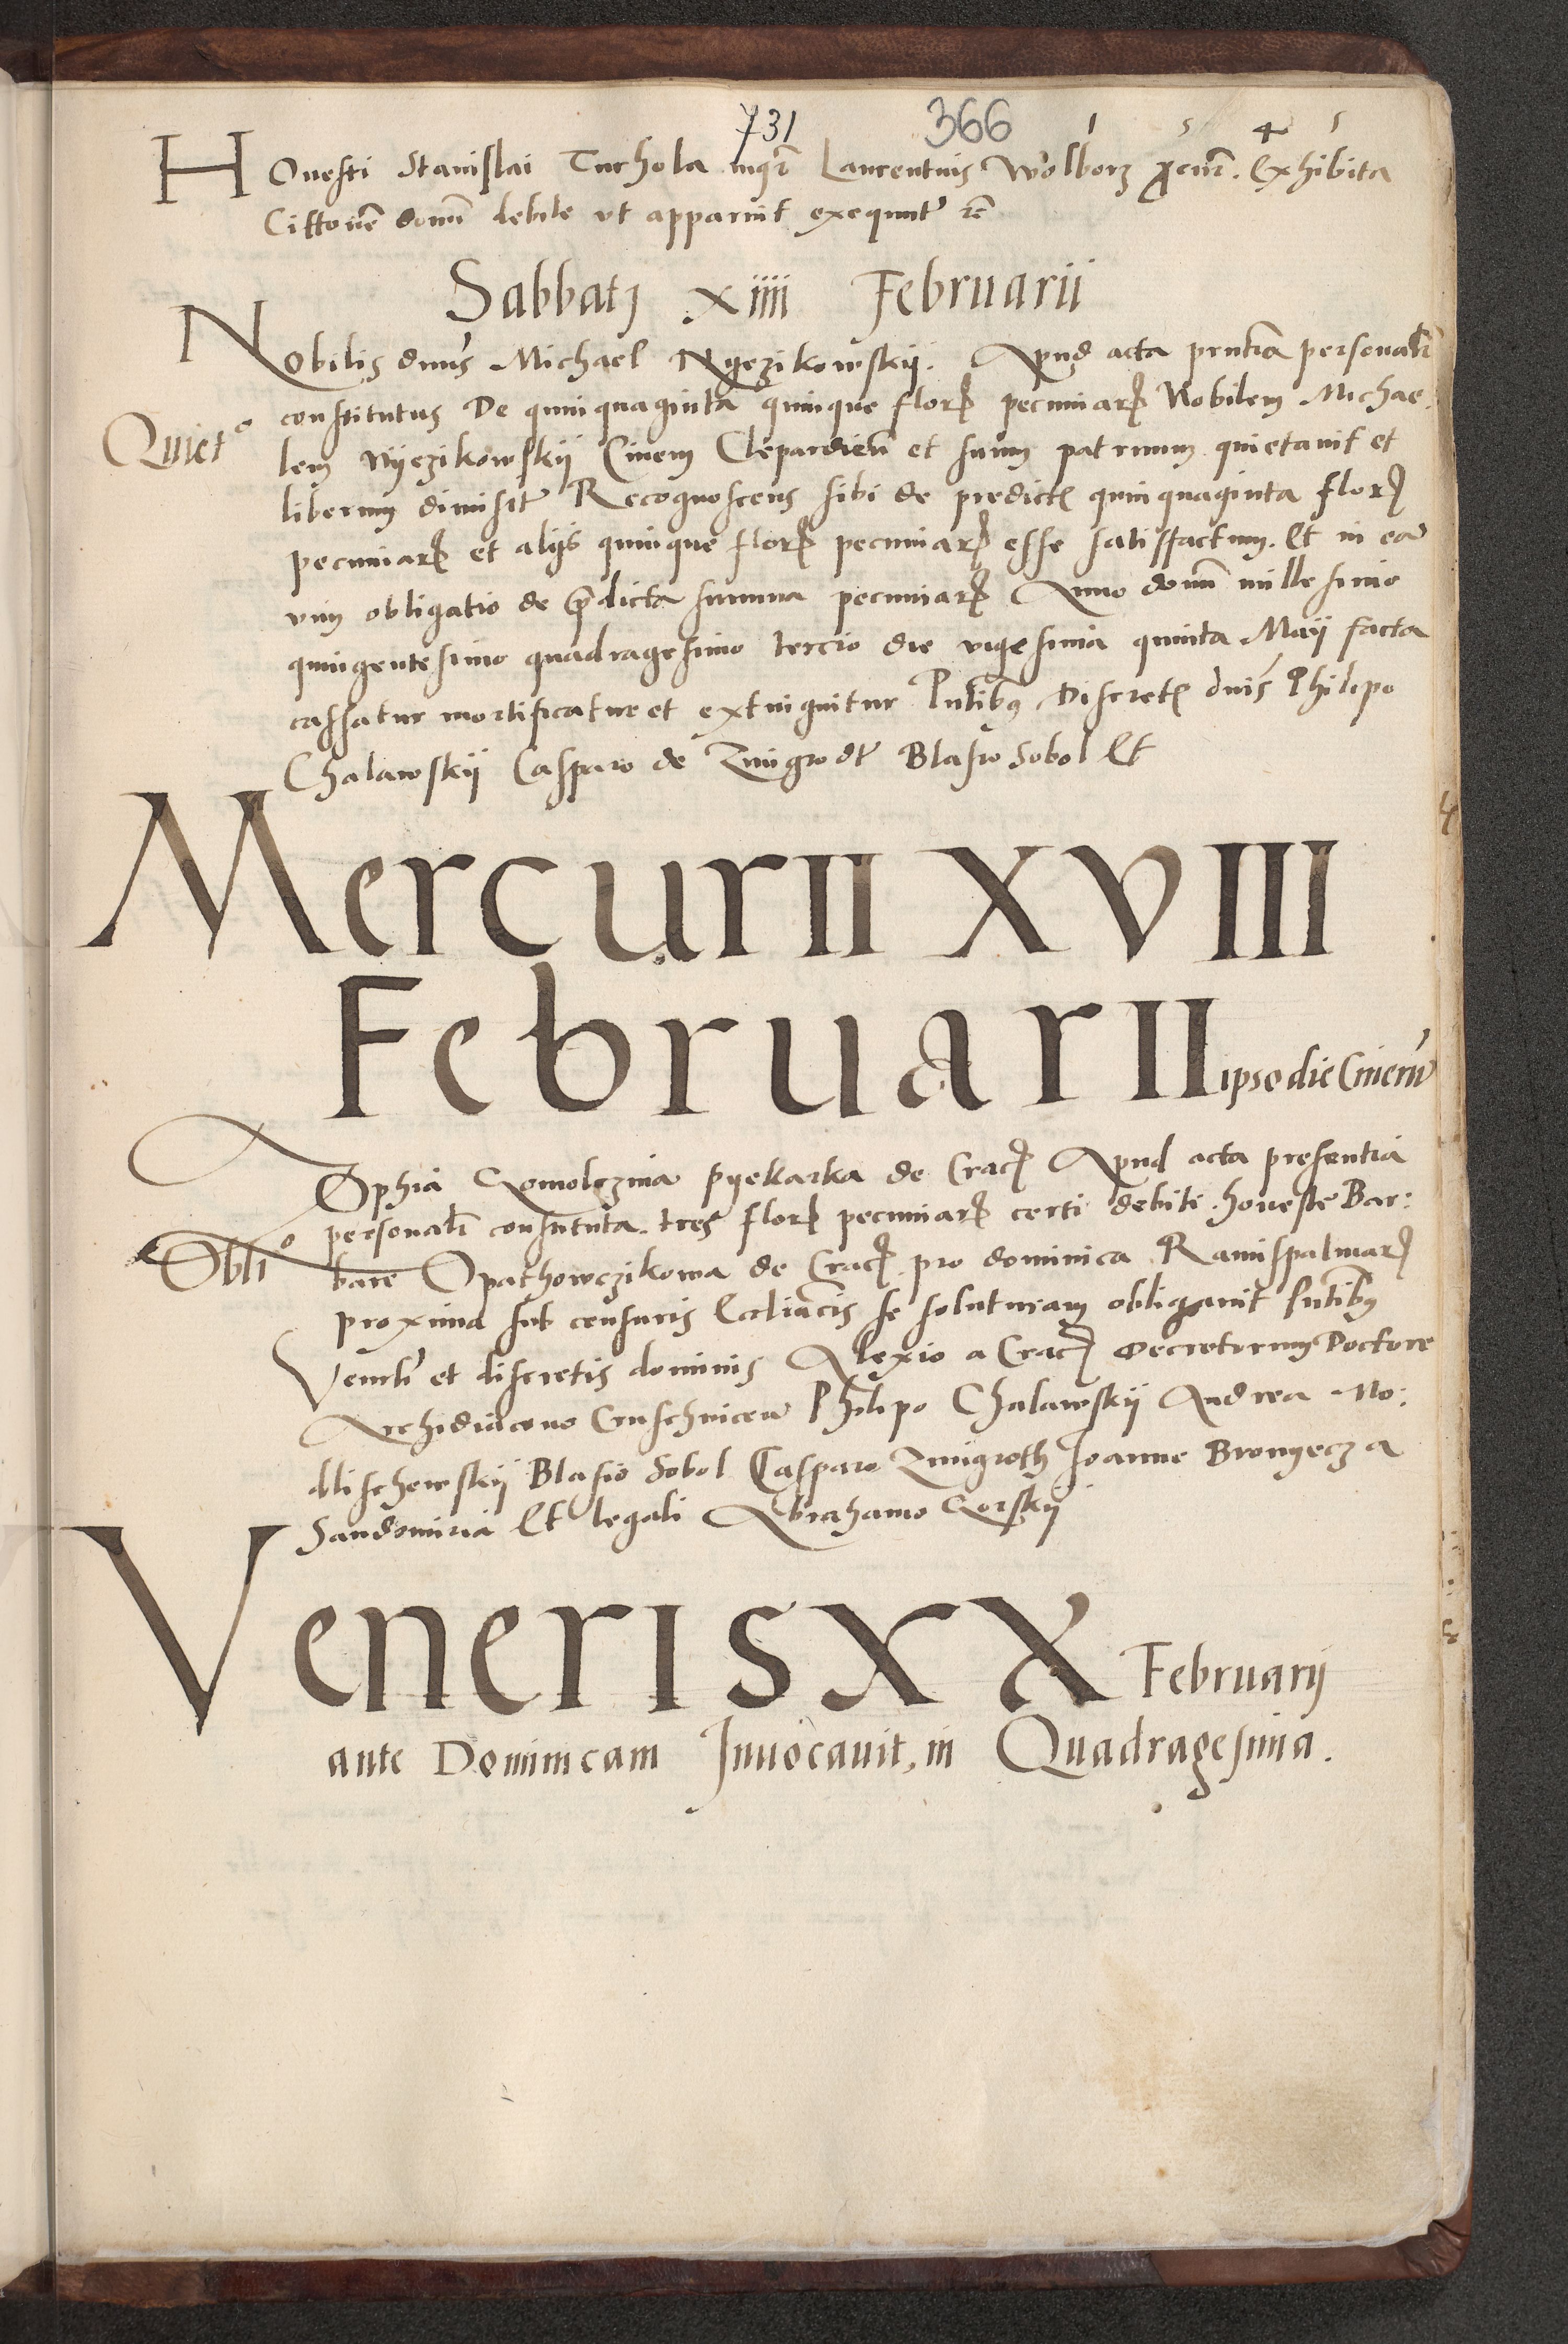 731 366 1 5 4 5
Honesti Stanislai Tuchola inqr̄ Laurentius Wolborz ꝓcur̄. Exhibita
Citto̅ne̅ domi̅ debite ut apparuit exequut~ re̅
Sabbatj xiiii Februarii
Nobilis dnu̅s Michael Nyezikowskij. Apud acta pr̅ntia personalr̅
constitutus De quinquaginta quinque florꝭ pecuniarꝭ Nobilem Michae-
Quiet~
lem Nyezikowskij Civem Clepardien̅ et suum patruum quietavit et
liberum dimisit~ Recognoscens sibi de predictꝭ quinquaginta florꝭ
pecuniarꝭ et alijs quinque florꝭ pecuniarꝭ esse satisffactum. Et in ea̅
vim obligatio de p̅dicta summa pecuniarꝭ Anno domi̅ millesimo
quingentesimo quadragesimo tercio die vigesima quinta Maij facta
cassatur mortificatur et extinguitur Pn̅tibꝯ Discretꝭ dni̅s Philipo
Chalawskij Casparo de Zmigrodt~ Blasio Sobol Et
Mercurii XVIII
Februarii ipso die Cineru̅
Zophia Gomolczina Pyekarka de Cracꝭ Apud acta presentia
personalr̅ constituta. tres florꝭ pecuniarꝭ certi debiti. honeste Bar:
Obli°
bare Opathowczikowa de Cracꝭ pro dominica Ramispalmarꝭ
proxima sub censuris Eccliacis se soluturam obligavit pn̅tibꝯ
Venerli̅ et discretis dominis Alexio a Cracꝭ Decretorum Doctore
Archidiacono Cruschvicen̅ Philipo Chalawskij Andrea Mo:
dlischewskij Blasio Sobol Casparo Zmigroth Joanne Bronyecz a
Sandomiria Et legali Abrahamo Gorskij
Veneris XX Februarij
ante Dominicam Invocavit, in Quadragesima.